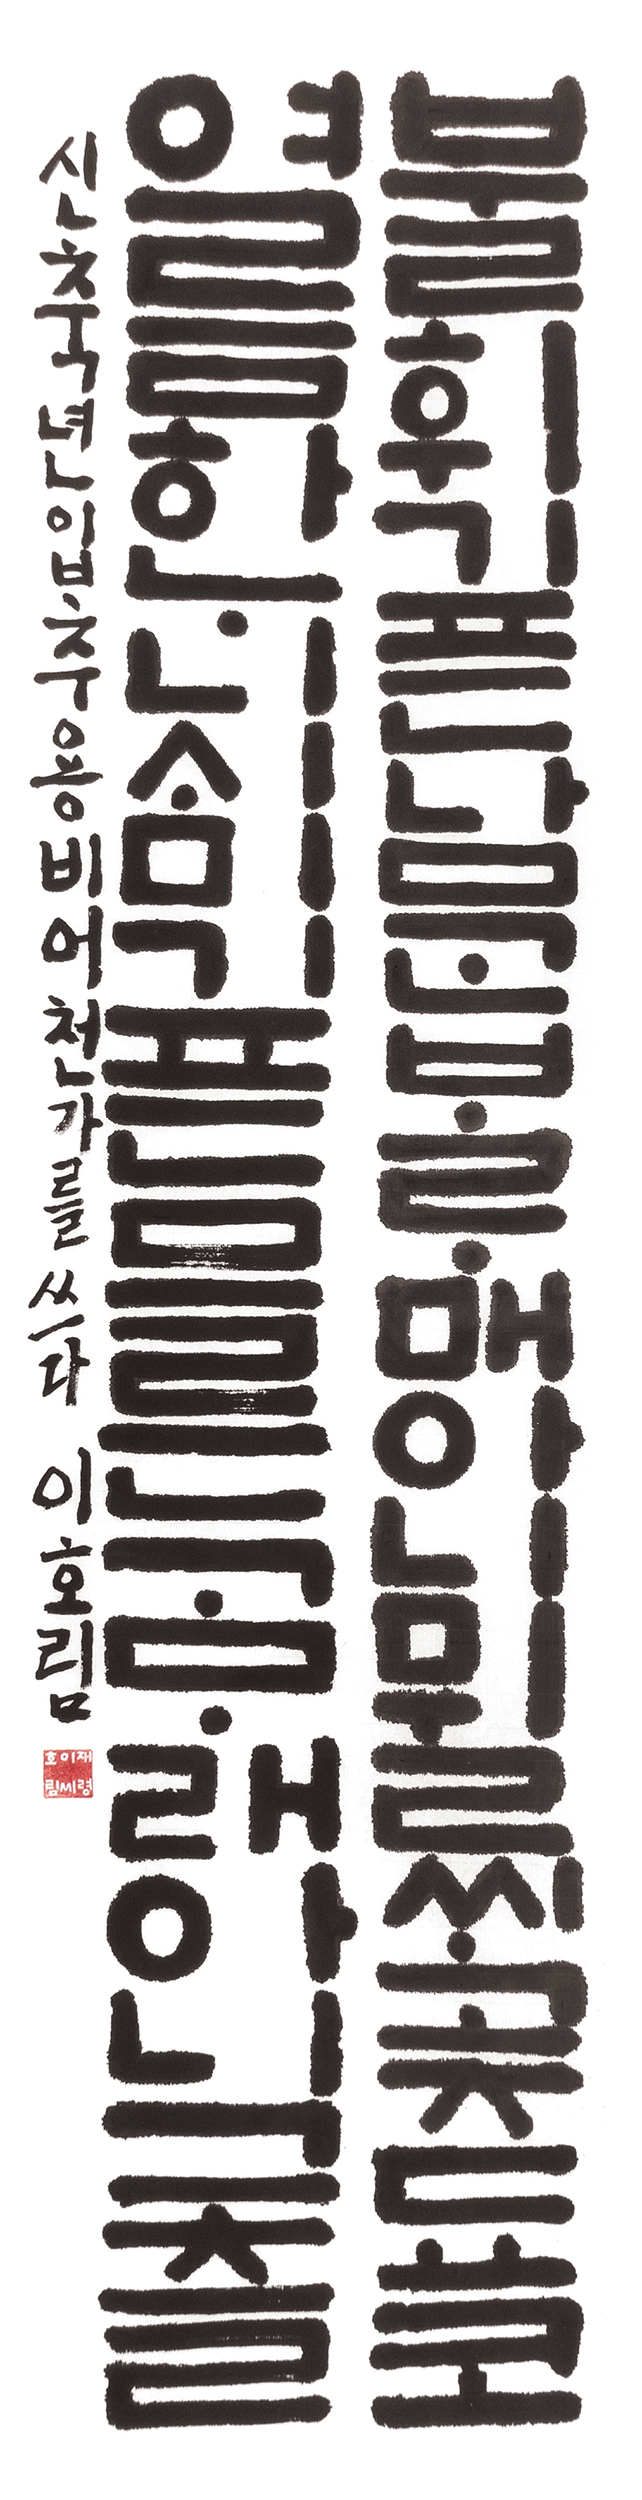 불휘기픈남ᄀᆞᆫᄇᆞᄅᆞ매아니뮐ᄊᆡ곶됴코
여름하ᄂᆞ니ᄉᆡ미기픈므른ᄀᆞᄆᆞ래아니그츨
신축년입추용비어천가를쓰다 이호림
재령
이씨
호림